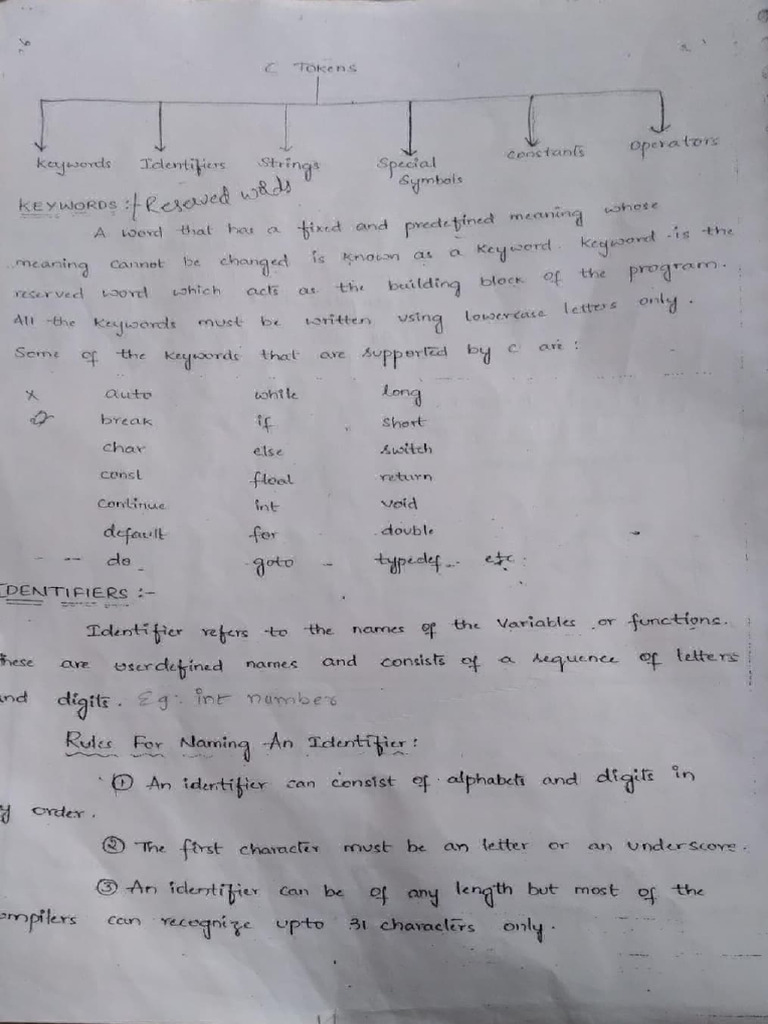 C Tokens
Keywords Identifiers Strings Special Symbols constants operators
KEYWORDS :- Reserved words
A word that has a fixed and predefined meaning whose
meaning cannot be changed is known as a keyword. keyword is the
reserved word which acts as the building block of the program.
All the keywords must be written using lowercase letters only.
Some of the keywords that are supported by c are :
auto while long
break if short
char else switch
const float return
continue int void
default for double
do goto typedef etc.
IDENTIFIERS :-
Identifier refers to the names of the variables or functions.
hese are userdefined names and consists of a sequence of letters
and digits. Eg: int number
Rules For Naming An Identifier :
① An identifier can consist of alphabets and digits in
y order.
② The first character must be an letter or an underscore.
③ An identifier can be of any length but most of the
ompilers can recognize upto 31 characters only.